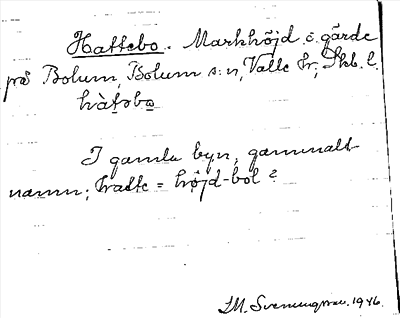 Hattebo. Markhöjd o. gärde
på Bolum, Bolum s:n, Valle hr, Skb. l.
hàt̠əbo̠
I gamla byn, gammalt
namn; hatte = höjd-bol?
1946.